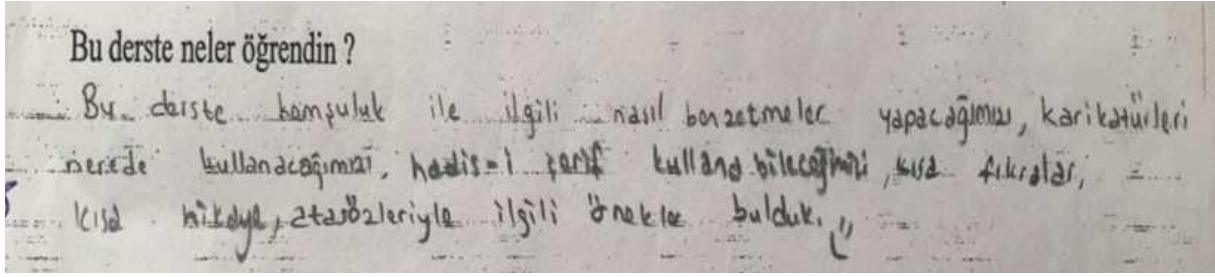 Bu derste neler öğrendin ?
Bu derste komşuluk ile ilgili nasıl benzetmeler yapacağımızı, karikatürleri
nerede kullanacağımızı, hadis-i şerif kullanabileceğimizi, kısa fıkralar,
kısa hikaye, atasözleriyle ilgili örnekle bulduk.